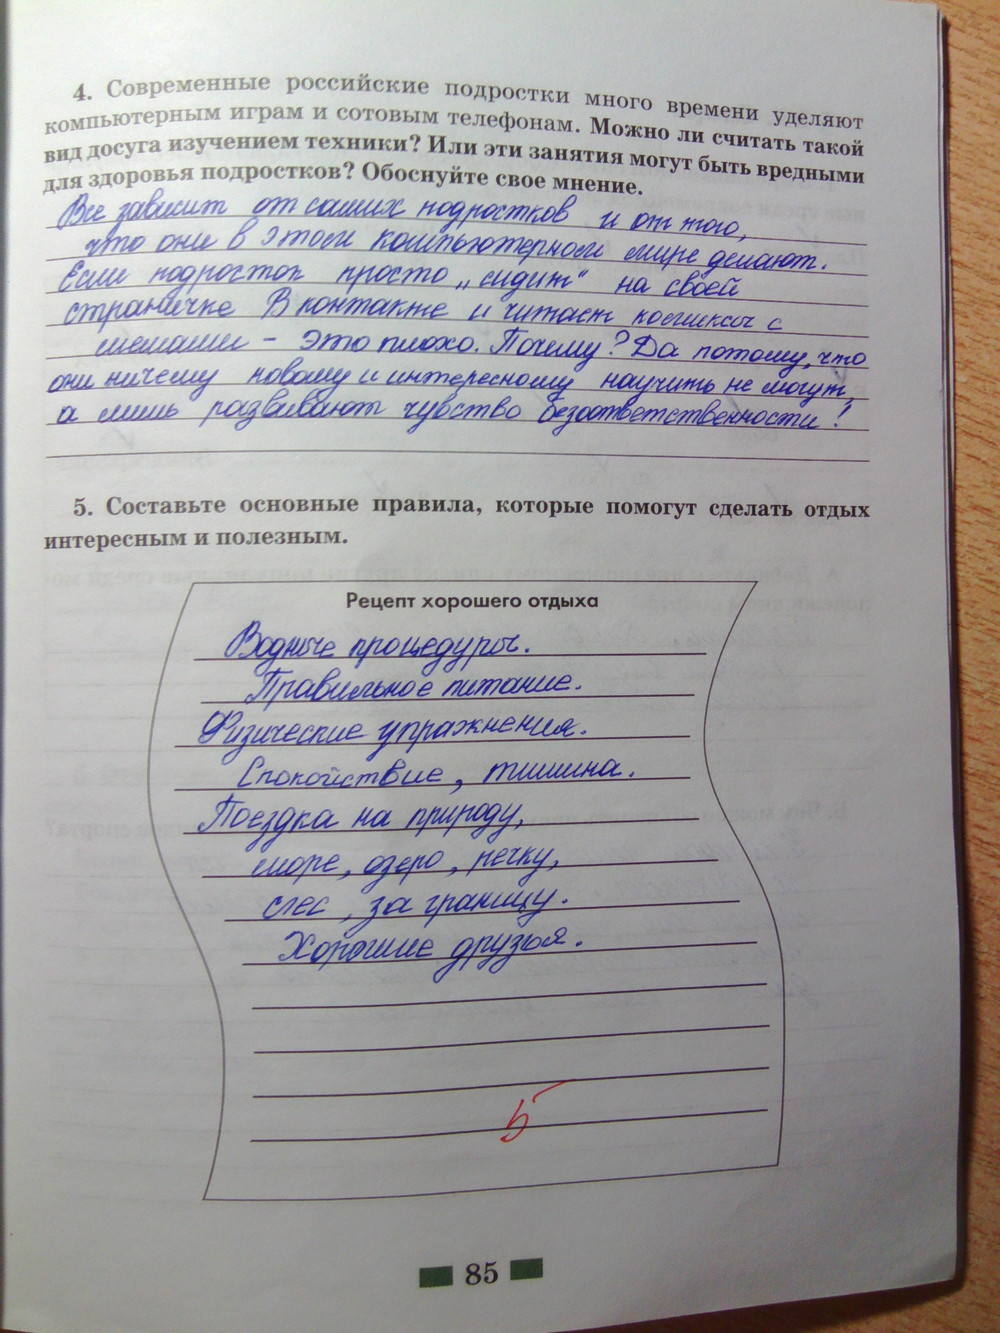 4. Современные российские подростки много времени уделяют
компьютерным играм и сотовым телефонам. Можно ли считать такой
вид досуга изучением техники? Или эти занятия могут быть вредными
для здоровья подростков? Обоснуйте свое мнение.
Все зависит от самих подростков и от того,
что они в этом компьютерном мире делают.
Если подросток просто „сидит" на своей
страничке В контакте и читает комиксы с
мемами - это плохо. Почему? Да потому, что
они ничему новому и интересному научить не могут,
а лишь развивают чувство безответственности!
5. Составьте основные правила, которые помогут сделать отдых
интересным и полезным.
Рецепт хорошего отдыха
Водные процедуры.
Правильное питание.
Физические упражнения.
Спокойствие, тишина.
Поездка на природу,
море, озеро, речку,
лес, за границу.
Хорошие друзья.
5
85